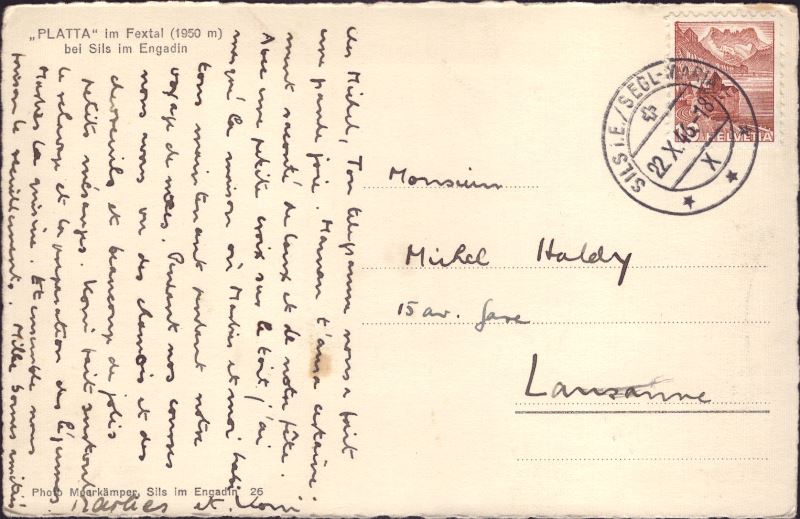 „PLATTA“ im Fextal (1950 m)
bei Sils im Engadin
HELVETIA
SILS i.E./SEGL-MARIA
22.X.46.-18
X
Monsieur
Michel Haldy
15 av. Gare
Lausanne
Cher Michel, Ton télégramme nous a fait
une grande joie. Maman t'aura certaine-
ment raconté de la et de notre fête.
Avec une petite croix sur le toit, j'ai
marqué la maison où Marlies et moi habi-
tons maintenant pendant notre
voyage de noces. Pendant nos courses
nous avons vu des chamois et des
chevreuils et beaucoup de jolis
petits mésanges. Koni fait surtout
le relavage et la préparation des légumes
Marlies la cuisine. Et ensemble nous
faisons le . Mille bonnes amitiés
Marlies et Koni
Photo Meerkämper, Sils im Engadin 26